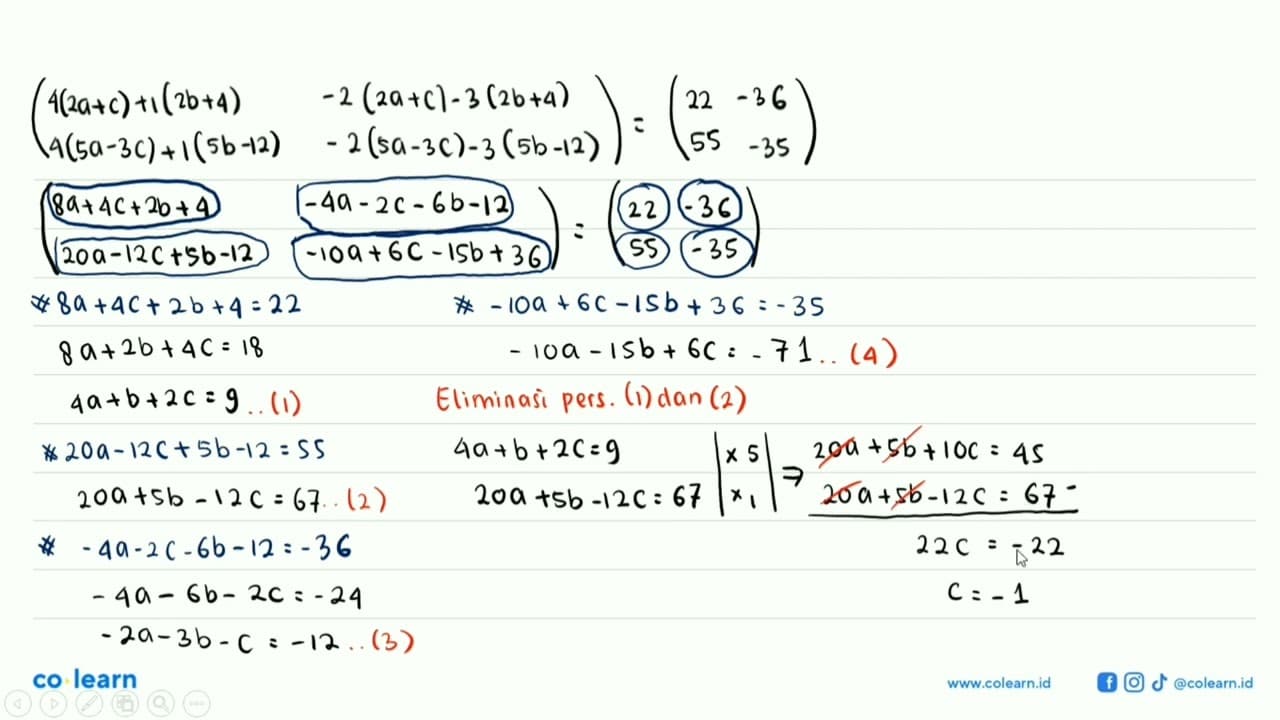 (4(2a+c)+1(2b+4) -2(2a+c)-3(2b+4)
4(5a-3c)+1(5b-12) -2(5a-3c)-3(5b-12)) = (22 -36
55 -35)
(8a+4c+2b+4 -4a-2c-6b-12
20a-12c+5b-12 -10a+6c-15b+36) = (22 -36
55 -35)
* 8a+4c+2b+4=22
8a+2b+4c=18
4a+b+2c=9 ..(1)
* 20a-12c+5b-12=55
20a+5b-12c=67..(2)
* -4a-2c-6b-12=-36
-4a-6b-2c=-24
-2a-3b-c=-12 ..(3)
* -10a+6c-15b+36=-35
-10a-15b+6c=-71..(4)
Eliminasi pers. (1) dan (2)
4a+b+2c=9 |x 5| ⇒ 20a+5b+10c=45
20a+5b-12c=67 |x 1| 20a+5b-12c=67 -
22c = -22
c = -1
co·learn
www.colearn.id
@colearn.id